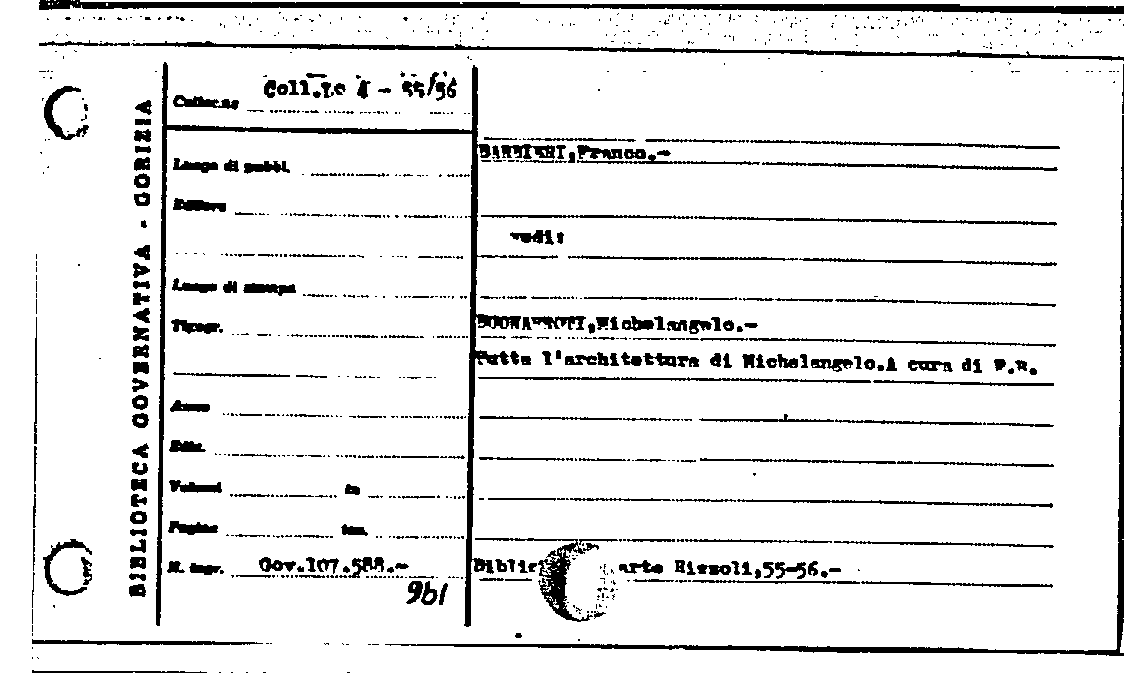 BIBLIOTECA GOVERNATIVA - GORIZIA
Colloc.ne Coll.Io 4 - 55/56
Luogo di pubbl.
Editore
Luogo di stampa
Tipogr.
Anno
Ediz.
Volumi in
Pagine
N. ingr. Gov.107.588.-
961
BARBIERI,Franco.-
vedi:
BUONARROTI,Michelangelo.-
Tutta l'architettura di Michelangelo.A cura di
arte Rizzoli,55-56.-